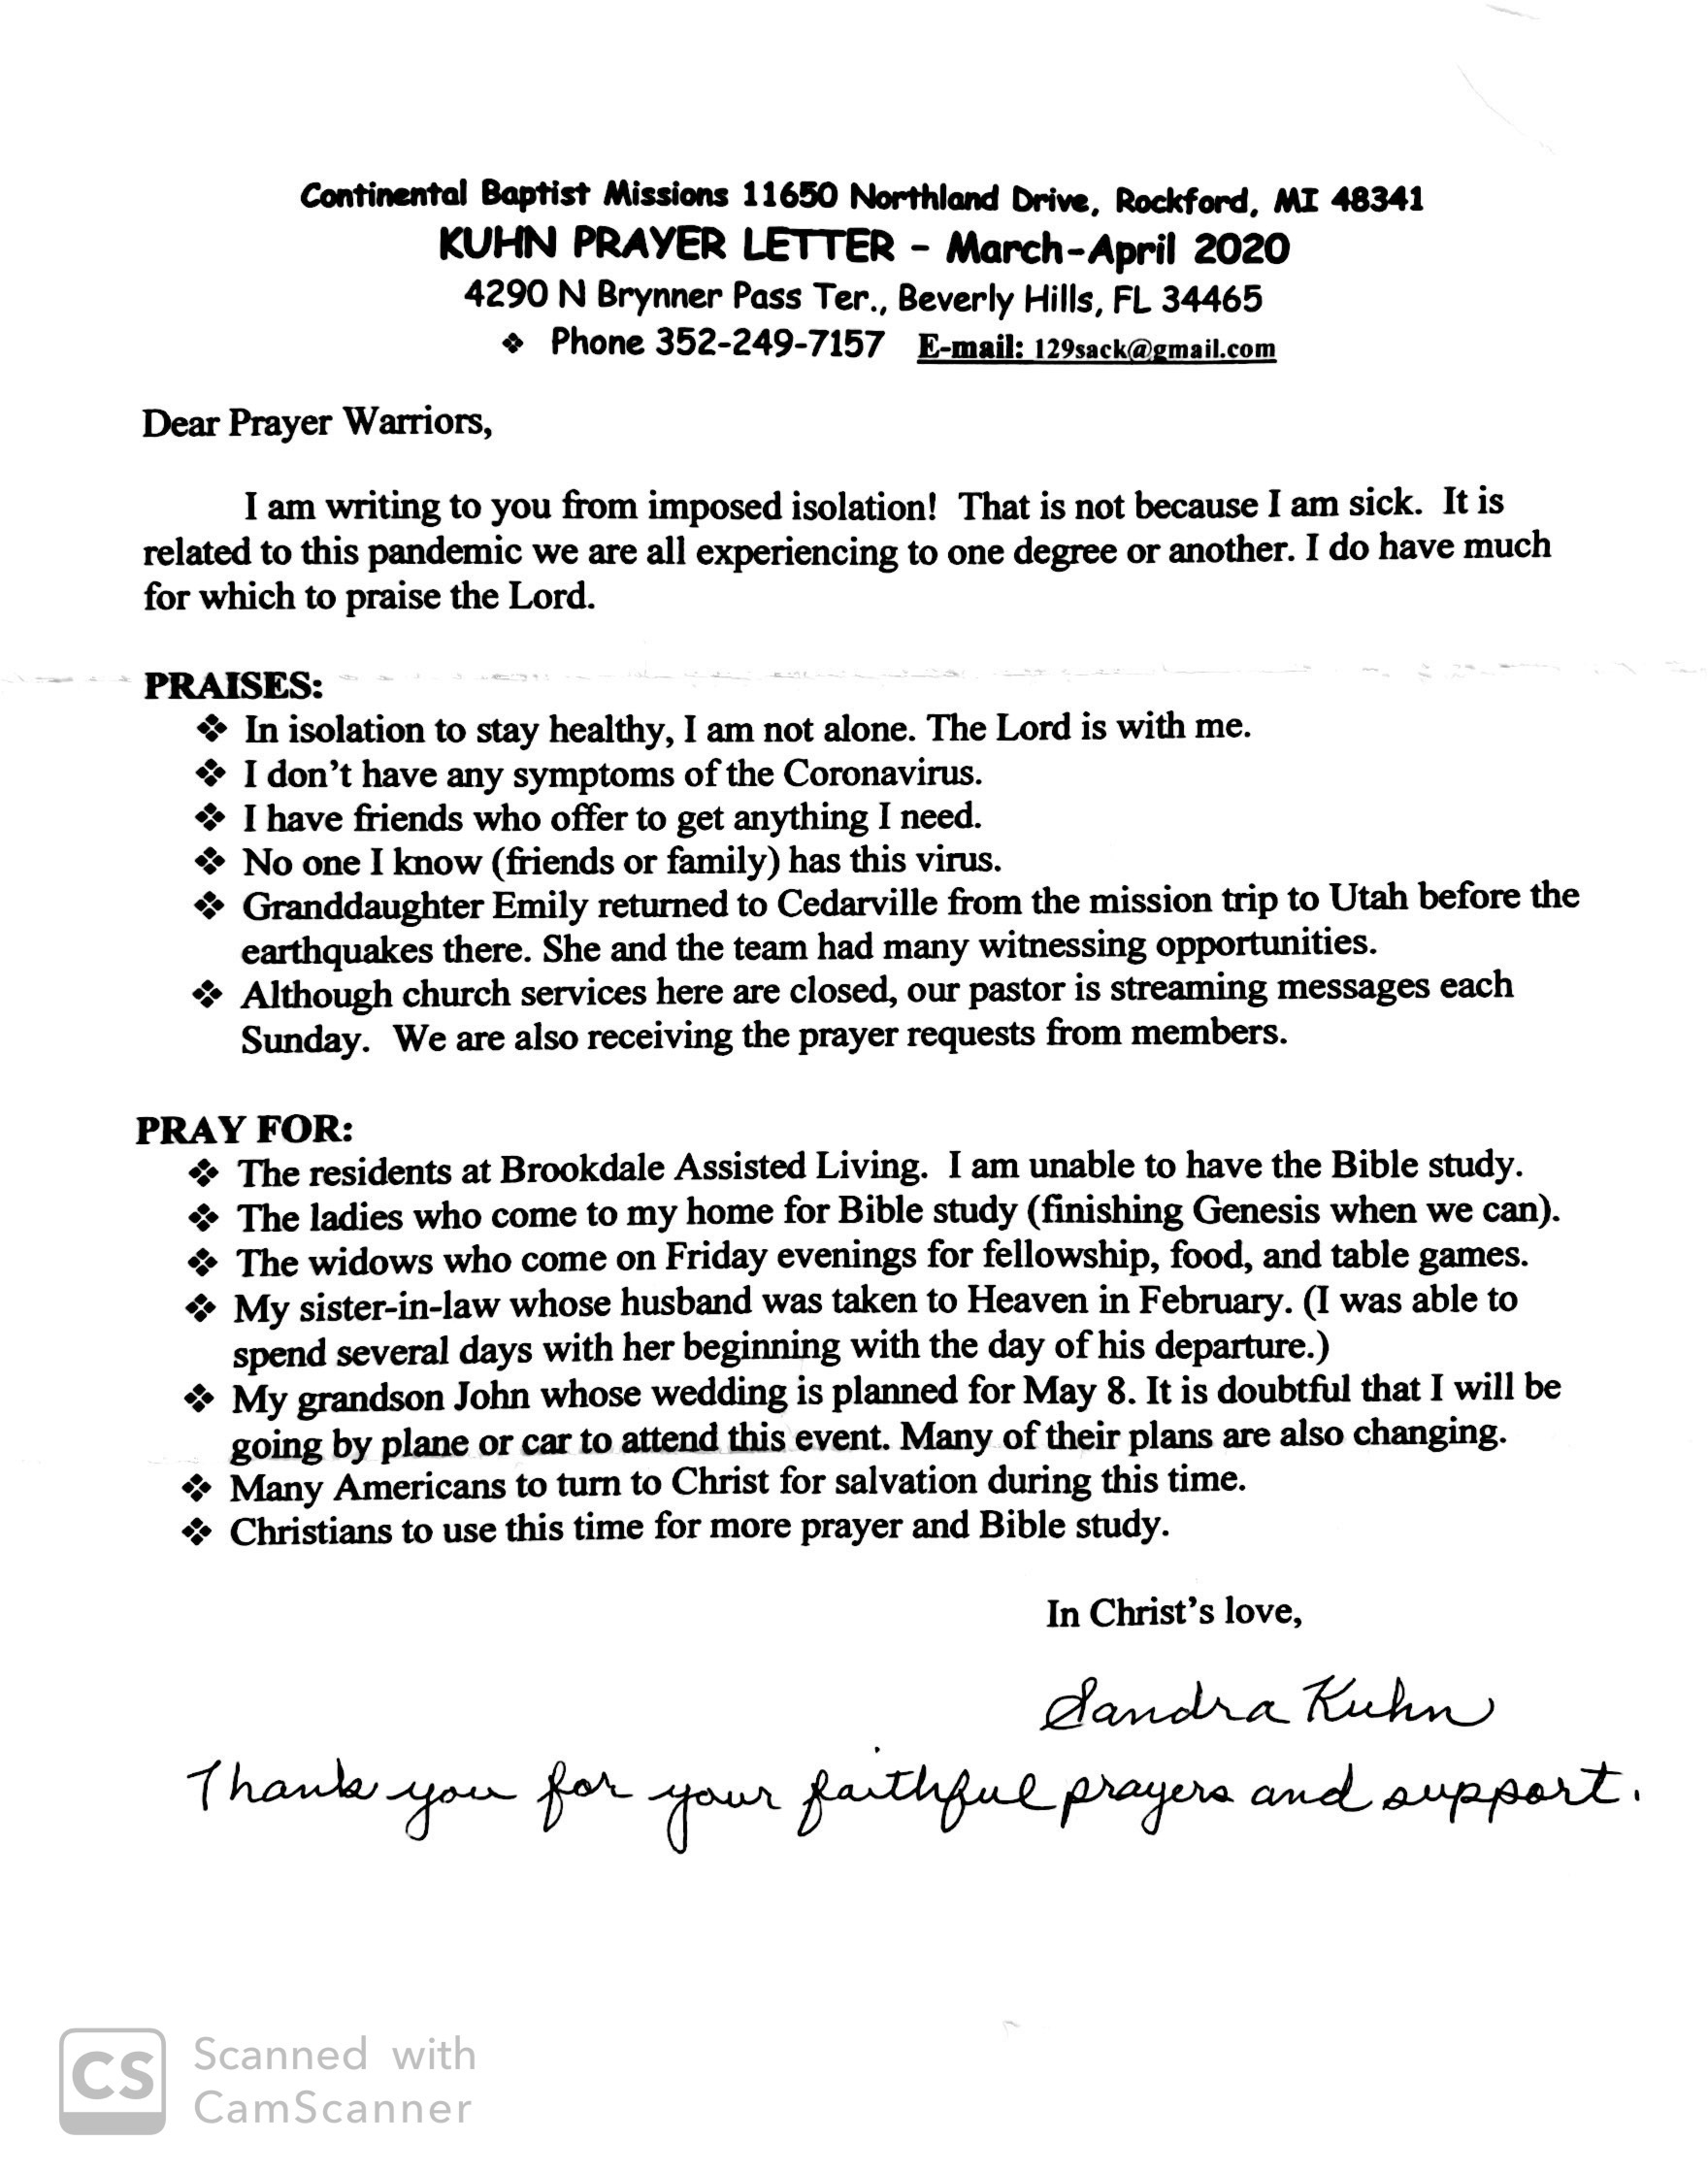 Continental Baptist Missions 11650 Northland Drive, Rockford, MI 48341
KUHN PRAYER LETTER - March-April 2020
4290 N Brynner Pass Ter., Beverly Hills, FL 34465
❖ Phone 352-249-7157 E-mail: 129sack@gmail.com
Dear Prayer Warriors,
I am writing to you from imposed isolation! That is not because I am sick. It is
related to this pandemic we are all experiencing to one degree or another. I do have much
for which to praise the Lord.
PRAISES:
❖ In isolation to stay healthy, I am not alone. The Lord is with me.
❖ I don't have any symptoms of the Coronavirus.
❖ I have friends who offer to get anything I need.
❖ No one I know (friends or family) has this virus.
❖ Granddaughter Emily returned to Cedarville from the mission trip to Utah before the
earthquakes there. She and the team had many witnessing opportunities.
❖ Although church services here are closed, our pastor is streaming messages each
Sunday. We are also receiving the prayer requests from members.
PRAY FOR:
❖ The residents at Brookdale Assisted Living. I am unable to have the Bible study.
❖ The ladies who come to my home for Bible study (finishing Genesis when we can).
❖ The widows who come on Friday evenings for fellowship, food, and table games.
❖ My sister-in-law whose husband was taken to Heaven in February. (I was able to
spend several days with her beginning with the day of his departure.)
❖ My grandson John whose wedding is planned for May 8. It is doubtful that I will be
going by plane or car to attend this event. Many of their plans are also changing.
❖ Many Americans to turn to Christ for salvation during this time.
❖ Christians to use this time for more prayer and Bible study.
In Christ's love,
Sandra Kuhn
Thank you for your faithful prayers and support.
CS Scanned with
CamScanner